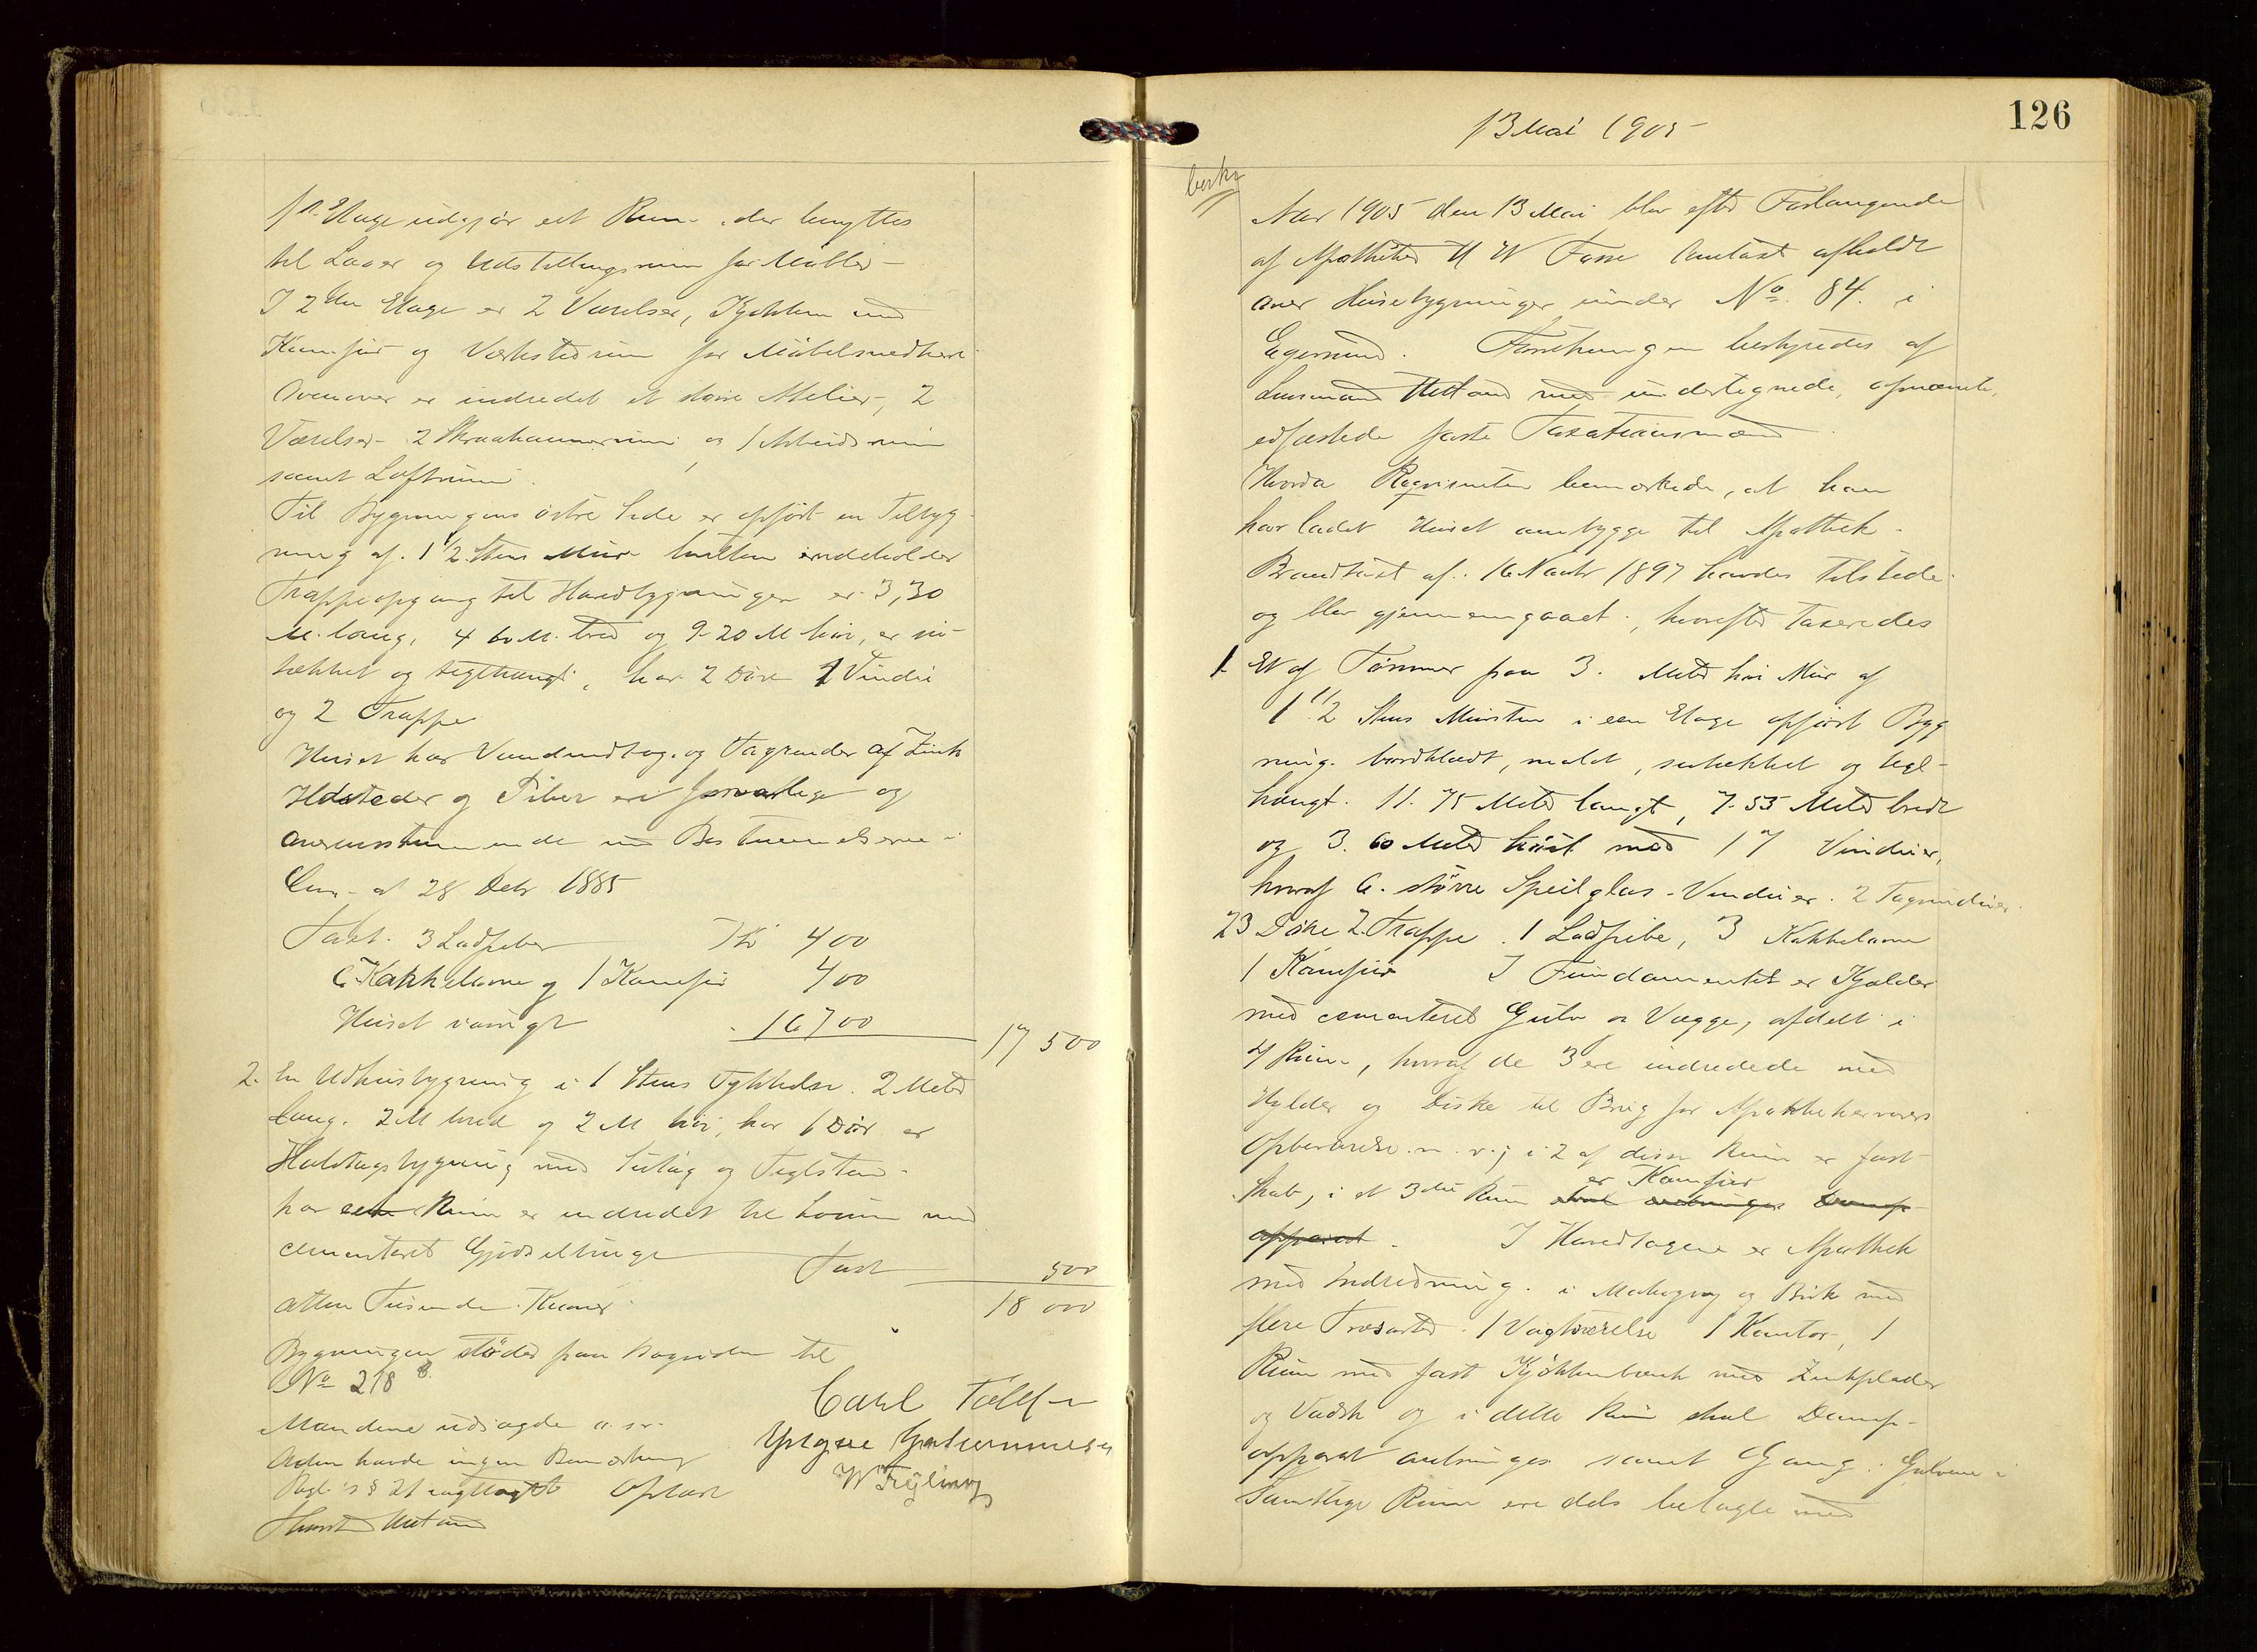 1ste Etage udgjør eet Rum der benyttes
til Lager og Udstillingsrum for Møbler
I 2den Etage er 2 Værelser, Kjøkken med
Komfur og Verkstedrum for Møbelsnedkere
Ovenover er indredet et større Atelier, 2
Værelser 2 Skraakammerrum og 1 Arbeidsrum
samt Loftrum.
Til Bygningens østre Side er opført en Tilbyg-
ning af 1 1/2 Stens Mur hvilken indeholder
Trappeopgang til Hovedbygningen er 3,30
M. lang, 4 60 M. bred og 9-20 M høi, er su-
tækket og teglhængt, har 2 Døre 1 Vindu
og 2 Trapper
Huset har Vandindtag og Tagrender af Zink
Ildsteder og Piber ere forsvarlige og
overensstemmende med Bestemmelserne i
Circ. af 28 Decbr 1885
Taxt. 3 Ladpiber Kr 400
6 Kakkelovne og 1 Komfur 400
Huset iøvrigt 16700
17 500
2. En Udhusbygning i 1 Stens Tykkelse 2 Meter
lang. 2 M bred og 2 M høi, har 1 Dør er
Halvtagsbygning med Sutag og Teglsten
har eet Rum er indredet til Locum med
cementeret Gjødselbinge Taxt 500
atten Tusende Kroner 18 000
Bygningen støder paa Bagsiden til
No 218 B.
Carl Tollf
Mændene udsagde a. s.
Yngve
Anden havde ingen Bemærkning
W Feyling
Regl.s § 21 iagttaget Oplæst
Hetland
126
13 Mai 1905
beskr
Aar 1905 den 13 Mai blev efter Forlangende
af Apotheker H W Fasse Omtaxt afholdt
over Husebygninger under No. 84. i
Egersund. Forretningen bestyredes af
Lensmand Hetland med undertegnede, opnævnte,
edfæstede faste Taxationsmænd
Hvorda Reqvirenten bemærkede, at han
har ladet Huset ombygge til Apothek.
Brandtaxt af 16 Novbr 1897 havdes tilstede
og blev gjennemgaaet, hvorefter taxeredes
1. Et af Tømmer paa 3. Meter høi Mur af
1 1/2 Stens Mursten i een Etage opført Byg
ning. bordklædt, malet, sutækket og tegl-
hængt. 11.75 Meter langt, 7.55 Meter bredt
og 3.60 Meter høit med 17 Vinduer,
hvoraf 6. større Speilglas-Vinduer. 2 Tagvinduer
23 Døre 2 Trapper. 1 Ladpibe, 3 Kakkelovne
1 Komfur I Fundamentet er Kjælder
med cementeret Gulv og Vægge, afdelt i
4 Rum, hvoraf de 3 ere indredede med
Hylder og Diske til Brug for Apothekervarers
Opbevarelse m. v.; i 2 af disse Rum er fast
er Komfur
Skab, i et 3die Rum skal anbringes Damp-
apparat. I Hovedetagen er Apothek
med Indredning i Mahogny og Birk med
flere Træsorter. 1 Vagtværelse 1 Kontor, 1
Rum med fast Kjøkkenbænk med Zinkplader
og Vadsk og i dette Rum skal Damp-
apparat anbringes samt Gang. Gulvene i
Samtlige Rum ere dels belagte med